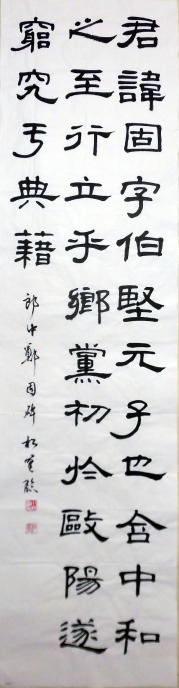 君諱固字伯堅元子也含中和
之至行立乎鄉黨初於歐陽遂
窮究于典藉
郎中鄭固碑 松